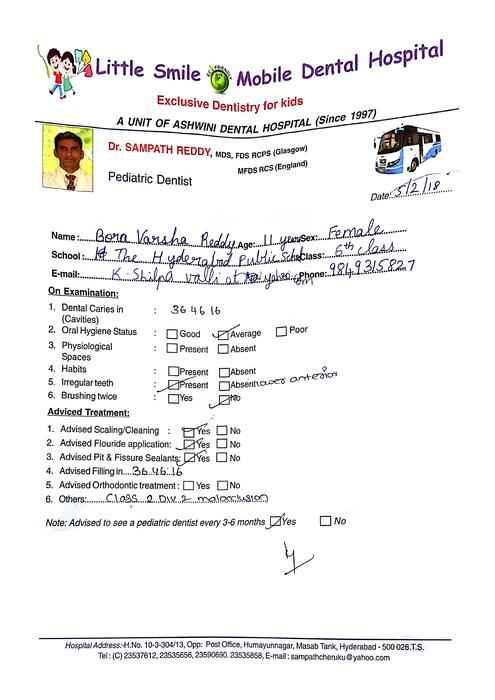 Little Smile Mobile Dental Hospital
Exclusive Dentistry for kids
A UNIT OF ASHWINI DENTAL HOSPITAL (Since 1997)
Dr. SAMPATH REDDY, MDS, FDS RCPS (Glasgow)
MFDS RCS (England)
Pediatric Dentist
Date: 5/2/18
Name: Bora Varsha Reddy Age: 11 years Sex: Female
School: The Hyderabad Public School Class: 6th class
E-mail: K.Shilpa valli at Phone: 9849315827
On Examination:
1. Dental Caries in : 36 46 16
(Cavities)
2. Oral Hygiene Status : Good Average Poor
3. Physiological : Present Absent
Spaces
4. Habits : Present Absent
5. Irregular teeth : Present Absent lower anteriors
6. Brushing twice : Yes No
Adviced Treatment:
1. Advised Scaling/Cleaning : Yes No
2. Advised Flouride application: Yes No
3. Advised Pit & Fissure Sealants: Yes No
4. Advised Filling in 36.46.16
5. Advised Orthodontic treatment : Yes No
6. Others: Class 2 Div 2 malocclusion
Note: Advised to see a pediatric dentist every 3-6 months Yes No
Hospital Address:-H.No. 10-3-304/13, Opp: Post Office, Humayunnagar, Masab Tank, Hyderabad - 500 028.T.S.
Tel : (C) 23537612, 23535656, 23590690. 23535858, E-mail : sampathcheruku@yahoo.com